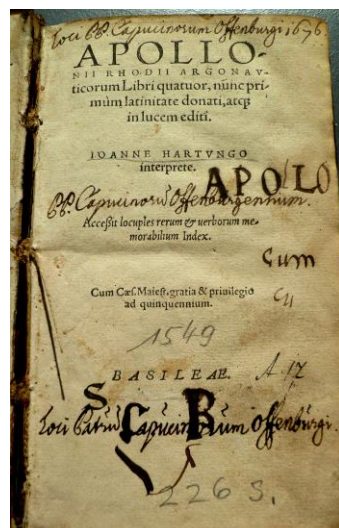 Loci PP. Capucinorum Offenburgi 1676
APOLLO-
NII RHODII ARGONAV-
ticorum Libri quatuor, nunc pri-
mùm latinitate donati, atq;
in lucem editi.
IOANNE HARTVNGO
interprete.
APOLO
PP. Capucinorũ Offenburgensium.
Accessit locuples rerum & uerborum me-
morabilium Index.
Cum
Cu
Cum Cæs. Maiest. gratia & priuilegio
ad quinquennium.
1549
BASILEAE.
A 17
S C R
Loci Patrũ Capucinorum Offenburgi.
226 S.